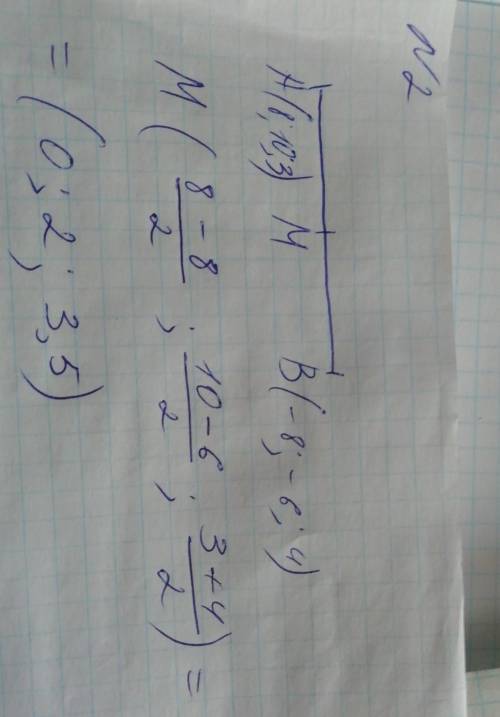 N2
A(8;10;3) M B(-8;-6;4)
M(8-8/2; 10-6/2; 3+4/2)=
=(0;2;3,5)